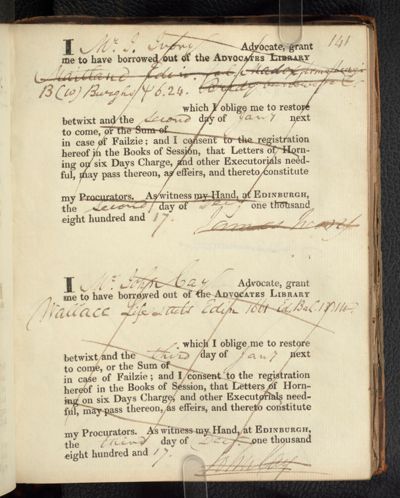 141
I Mr. J. Ivory Advocate, grant
me to have borrowed out of the ADVOCATES LIBRARY
Maitland
B (10) Burghs 4 6.24.
which I oblige me to restore
betwixt and the second day of Jany next
to come, or the Sum of
in case of Failzie; and I consent to the registration
hereof in the Books of Session, that Letters of Horn-
ing on six Days Charge, and other Executorials need-
ful, may pass thereon, as effeirs, and thereto constitute
my Procurators. As witness my Hand, at EDINBURGH,
the second day of Decr one thousand
eight hundred and 17.
James Ivory
I Mr. John Cay Advocate, grant
me to have borrowed out of the ADVOCATES LIBRARY
Wallace Life Edin
which I oblige me to restore
betwixt and the third day of Jany next
to come, or the Sum of
in case of Failzie; and I consent to the registration
hereof in the Books of Session, that Letters of Horn-
ing on six Days Charge, and other Executorials need-
ful, may pass thereon, as effeirs, and thereto constitute
my Procurators. As witness my Hand, at EDINBURGH,
the third day of Decr one thousand
eight hundred and 17.
John Cay